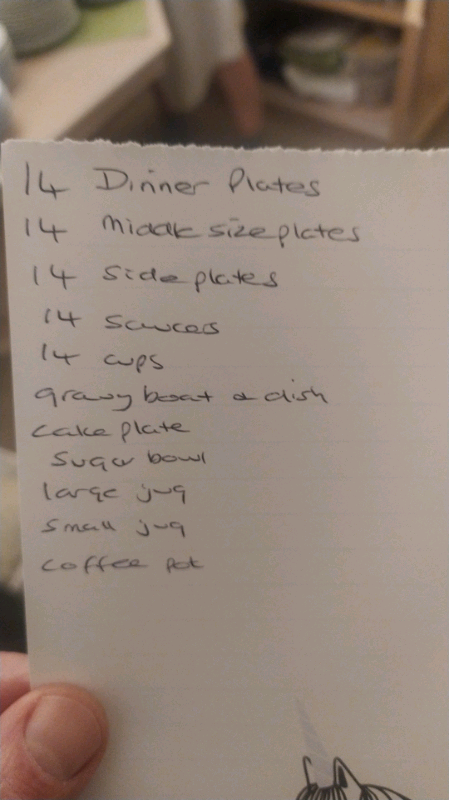 14 Dinner Plates
14 middle size plates
14 side plates
14 saucers
14 cups
gravy boat & dish
cake plate
sugar bowl
large jug
small jug
coffee pot